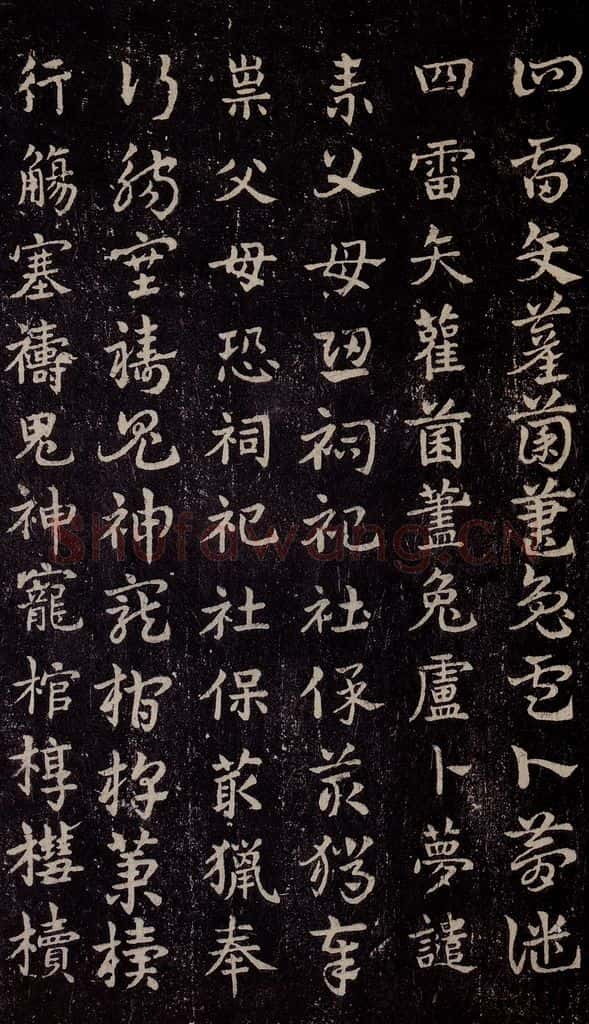 四雷矢雚菌藎兔盧卜夢譴
四雷矢雚菌藎兔盧卜夢譴
祟父母恐祠祀社保菆獵奉
祟父母恐祠祀社保菆獵奉
行觴塞禱鬼神寵棺椁槥櫝
行觴塞禱鬼神寵棺椁槥櫝
Shufawang.CN